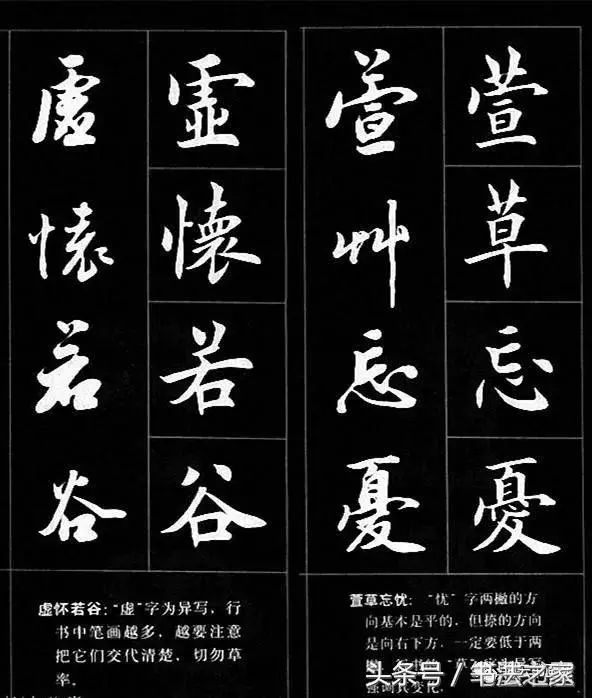 萱草忘憂
萱艸忘憂
虛懷若谷
虛懷若谷
萱草忘忧：“忧”字两撇的方
向基本是平的，但捺的方向
是向右下方，一定要低于两
强调其变化。
虚怀若谷：“虚”字为异写，行
书中笔画越多，越要注意
把它们交代清楚，切勿草
率。
头条号/书法之家